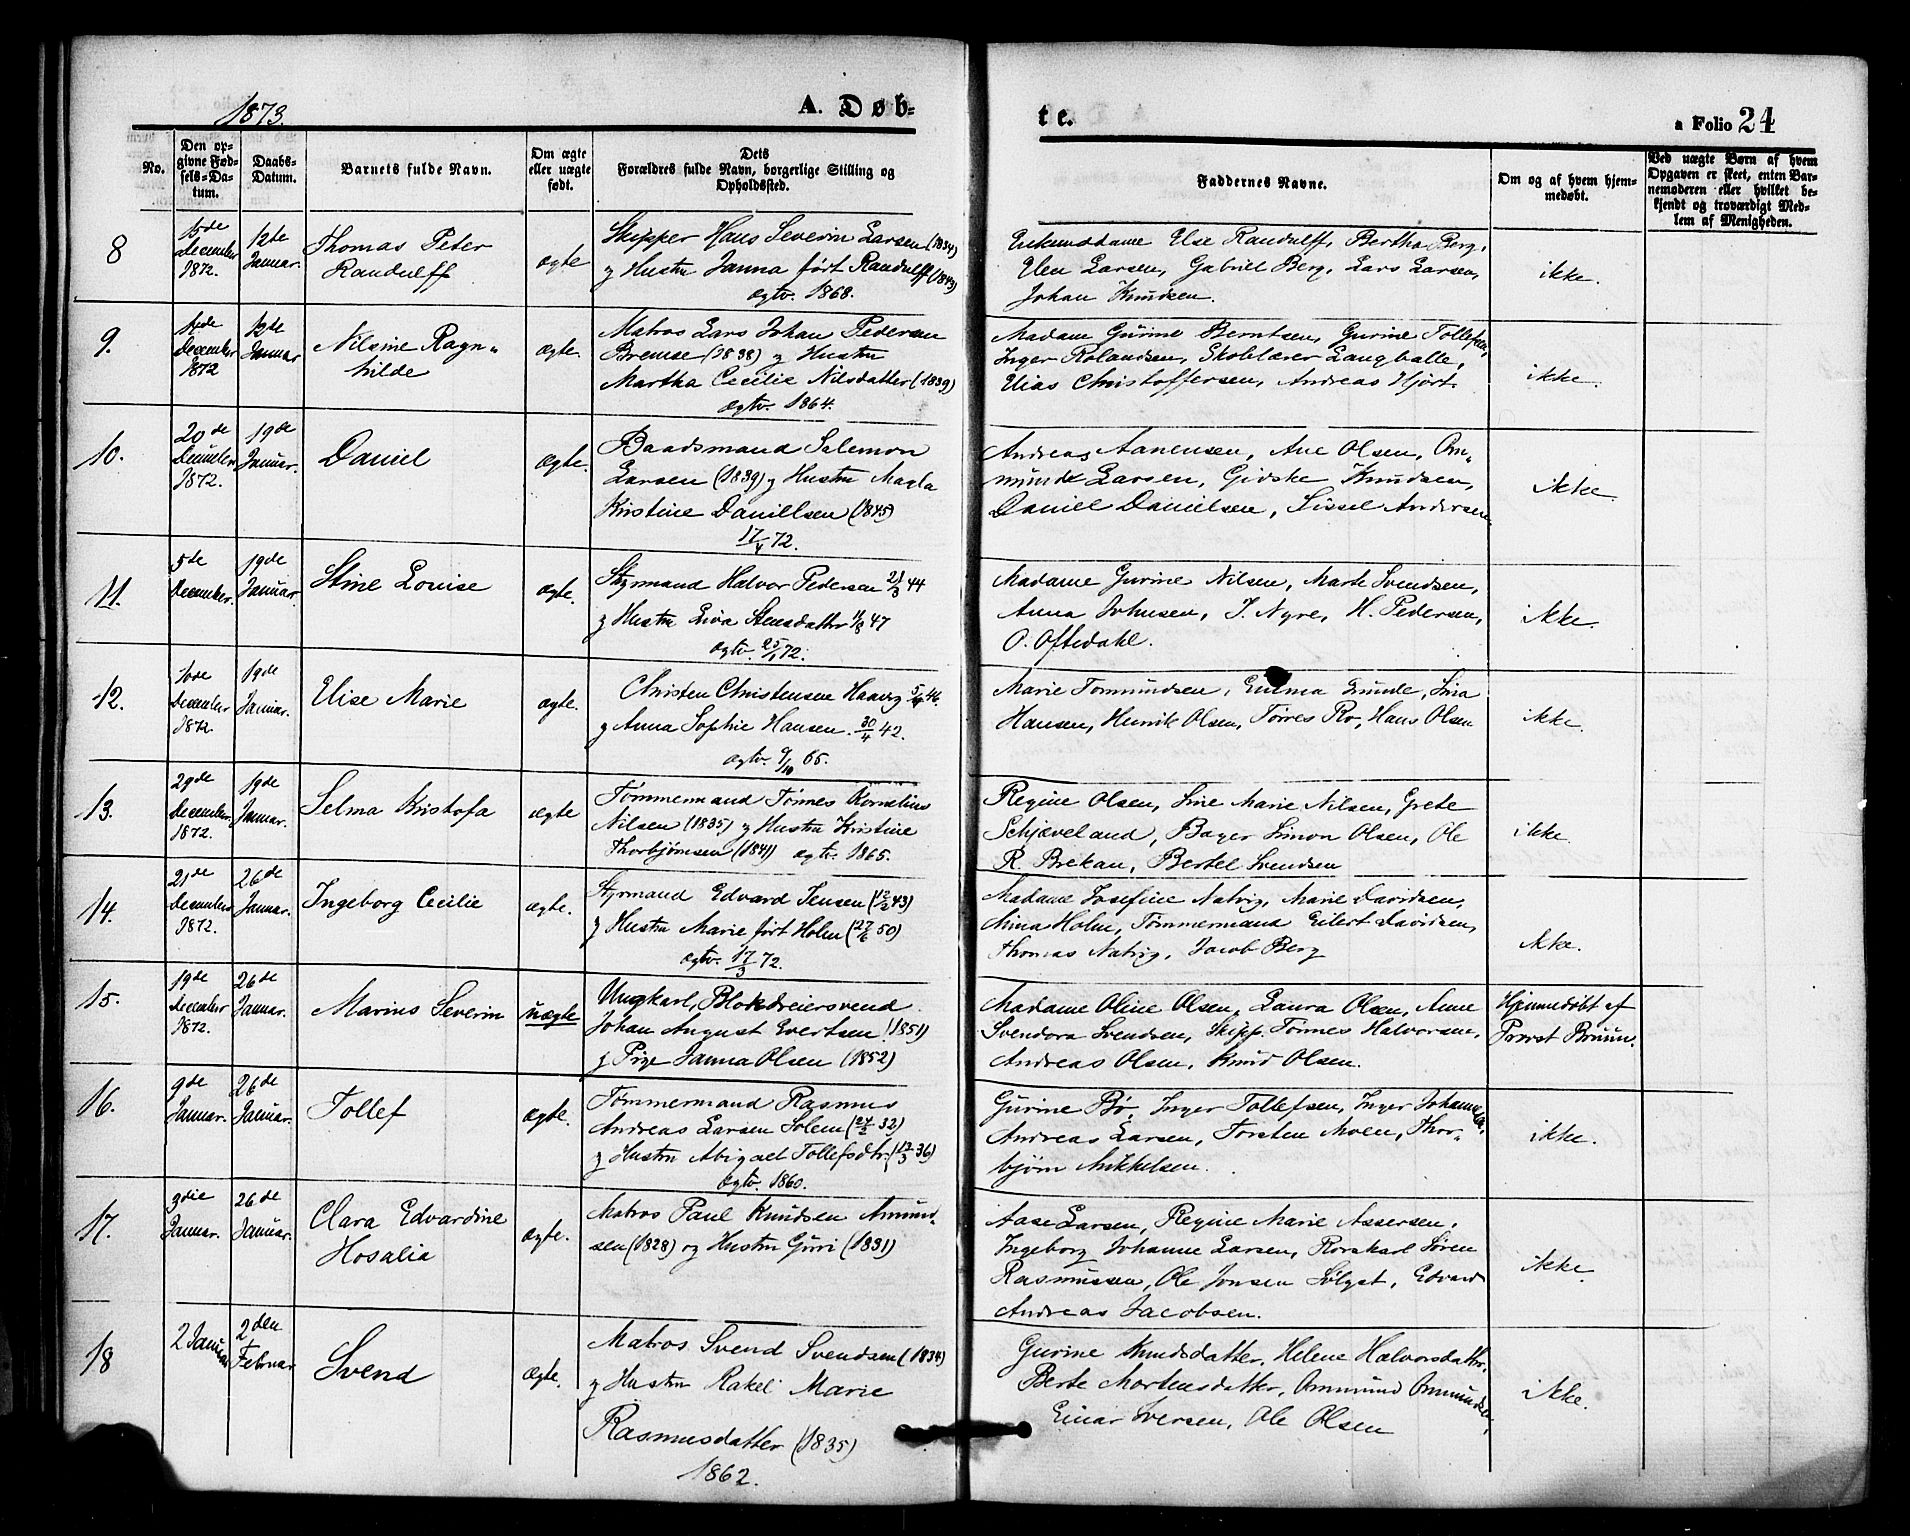 1873.
A. Døb-
te.
a Folio 24
No.
Den op-
givne Fød-
sels-Da-
tum.
Daabs-
Datum.
Barnets fulde Navn.
Om ægte
eller uægte
født.
Dets
Forældres fulde Navn, borgerlige Stilling og
Opholdssted.
Faddernes Navne.
Om og af hvem hjem-
medøbt.
Ved uægte Børn af hvem
Opgaven er skeet, enten Bar-
nemoderen eller hvilket be-
kjendt og troværdigt Med-
lem af Menigheden.
8
December
1872.
12te
Januar.
Thomas Peter
Randulff
ægte
Skipper Hans Severin Larsen (1834)
og Hustru Janna født Randulff (1843)
ægtv. 1868.
Enkemadame Else Randulff, Bertha Berg,
Elen Larsen, Gabriel Berg, Lars Larsen,
Johan Knudsen.
ikke.
9.
December
1872
12te
Januar
Nilsine Ragn-
hilde
ægte.
Matros Lars Johan Pedersen
Bremse (1838) og Hustru
Martha Cecilie Nilsdatter (1839)
ægtv. 1864.
Madam Gurine Berntsen, Gurine Tollefsen,
Inger Rolandsen, Skolelærer Langballe,
Elias Christoffersen, Andreas Hjort.
ikke.
10.
20de
December
1872.
19de
Januar.
Daniel
ægte.
Baadsmand Salemon
Larsen (1839) og Hustru Magla
Kristine Daniellsen (1845)
17/4 72.
Andreas Aanensen, Ane Olsen, Om-
mund Larsen, Gidske Knudsen,
Daniel Danielsen, Sissel Andersen
ikke
11.
5de
December.
19de
Januar.
Stine Louise
ægte.
Styrmand Halvor Pedersen 21/3 44
og Hustru Live Stensdatter 11/8 47
ægtv. 25/1 72.
Madame Gurine Nilsen, Marte Svendsen,
Anna Johnsen, J. Nyre, H. Pedersen,
O. Oftedahl.
ikke.
12.
December
1872.
19de
Januar.
Elise Marie
ægte.
Christen Christensen Haavig 46.
og Anna Sophie Hansen. 30/4 42.
ægtv. 9/10 65.
Marie Tomundsen, Emma Gunde, Sina
Hansen, Henrik Olsen, Tørres Ro, Hans Olsen
ikke
13.
29de
December
1872.
19de
Januar.
Selma Kristofa
ægte
Tømmermand Tønnes Kornelius
Nilsen (1835) og Hustru Kristine
Thorbjørnsen (1841) ægtv. 1865.
Regine Olsen, Sine Marie Nilsen, Grete
Schjæveland, Bager Simon Olsen, Ole
R. Brekan, Bertel Svendsen
ikke.
14.
21de
December
1872.
26de
Januar.
Ingeborg Cecilie
ægte.
Styrmand Edvard Jensen (12/2 43)
og Hustru Marie født Holm (27/6 50)
ægtv. 17/3 72.
Madame Josefine Natvig, Marie Davidsen,
Mina Holm, Tømmermand Eilert Davidsen,
Thomas Natvig, Jacob Berg
ikke.
15.
19de
December
1872.
26de
Januar.
Marius Severin
uægte
Ungkarl, Blokdreiersvend
Johan August Evertsen (1851)
og Pige Janna Olsen (1852)
Madame Oline Olsen, Laura Olsen, Anne
Svendora Svendsen, Skipp. Tønnes Halvorsen,
Andreas Olsen, Knud Olsen.
Hjemmedøbt af
Provst Bruun.
16.
9de
Januar.
26de
Januar.
Tollef
ægte.
Tømmermand Rasmus
Andreas Larsen Solem (24/2 32)
og Hustru Abigael Tollefsdtr. (12/3 36)
ægtv. 1860.
Gurine Bø, Inger Tollefsen, Inger Johannesen,
Andreas Larsen, Torsten Moen, Thor-
bjørn Mikkelsen.
ikke.
17.
3die
Januar.
26de
Januar.
Clara Edvardine
Hosalia
ægte.
Matros Paul Knudsen Amund-
sen (1828) og Hustru Guri (1831)
Aase Larsen, Regine Marie Assersen,
Ingeborg Johanne Larsen, Rorskarl Søren
Rasmussen, Ole Jonsen Sølyst, Edvard
Andreas Jacobsen.
ikke.
18
2 Januar
2den
Februar.
Svend
Ægte.
Matros Svend Svendsen (1834)
og Hustru Rakel Marie
Rasmusdatter (1835)
1862.
Gurine Knudsdatter, Helene Halvorsdatter,
Berte Mortensdatter, Ommund Ommundsen,
Einar Iversen, Ole Olsen
ikke.